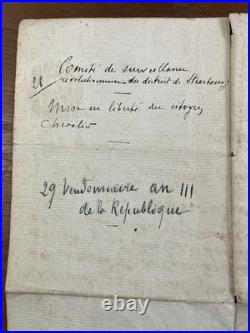 28
Comité de surveillance
révolutionnaire du district de Strasbourg
Mise en liberté du citoyen
Chevalier
29 Vendemiaire an III
de la Republique